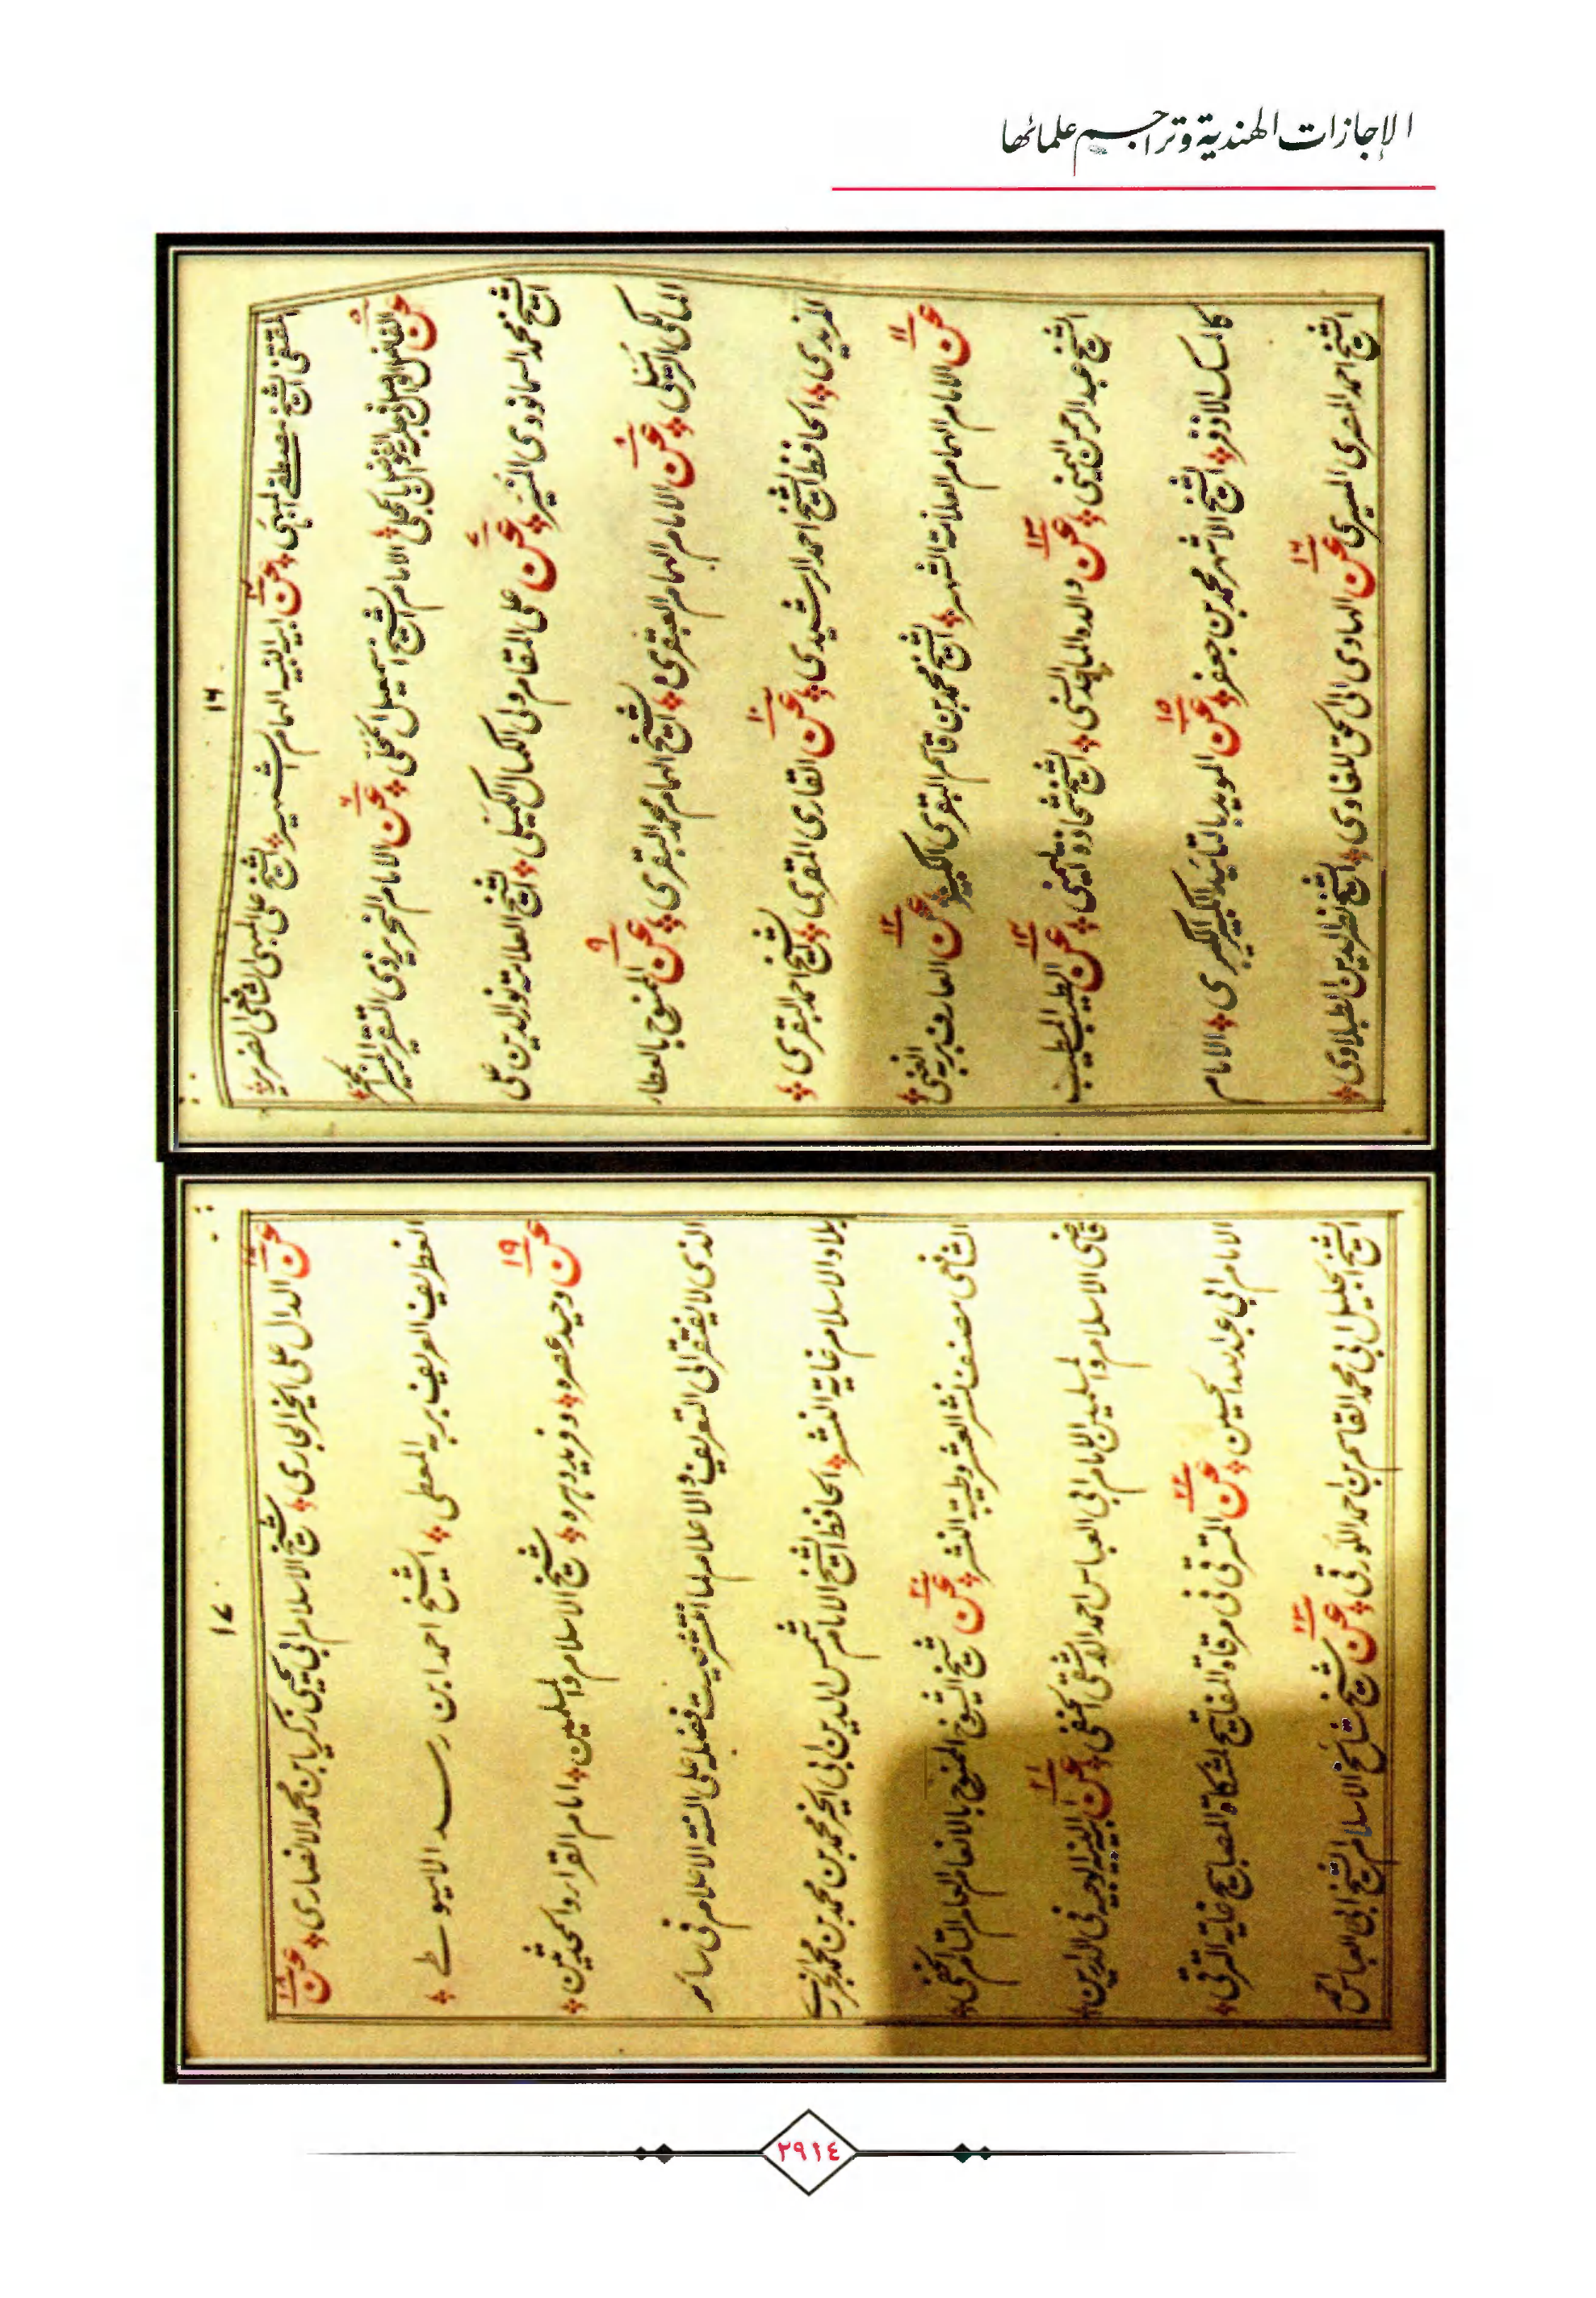 الإجازات الهندية وتراجم علمائها
١٦
المقتفی الشیخ مصطفے المیهی عن ابیه النبیه الهمام الشهیر الشیخ علی المیهی الشافعی الضریر
عن الفاضل الامام الشیخ اسمعیل المحلی عن الامام النحریر ذی التقریر
الشیخ محمد السمانودی المنیر عن علی المقام ولی الکمال الشیخ العلامة نور الدین علی
المالکی عن الامام الهمام العبقری الشیخ الهمام محمد البقری عن الممنوح بالعطار
الحافظ الشیخ احمد الرشیدی عن القاری المقری الشیخ احمد البقری
عن الامام الهمام العلامة الشهیر الشیخ محمد بن قاسم البقری الکبیر عن العارف بربه الغنی
الشیخ عبد الرحمن الیمنی عن والده الماجد السنی الشیخ شحاذة الیمنی عن الطیب المطیب
کالمسک الاذفر الشیخ الاشهر محمد بن جعفر عن الموید بالتایید الکبیر الکبری الامام
الشیخ احمد المصری المسیری عن الهادی الی الحق للغاوی الشیخ نصر الدین الطبلاوی
١٧
عن الدال علی الخیر الجاری شیخ الاسلام ابی یحیی زکریا بن محمد الانصاری عن
الغطریف العریف بربه المعطی الشیخ احمد ابن رسد الاسیوطے
عن وحید عصره و فرید دهره شیخ الاسلام والمسلمین امام القراء والمحدثین
الذی لا یفتقر الی التعریف والاعلام لما انتشر صیت فضله علی السنة الاعلام فی سائر
بلاد الاسلام غایة النشر الحافظ الشیخ الامام شمس الدین ابی الخیر محمد بن محمد بن محمد الجزری
الشافعی مصنف نشر العشر وطیبة النشر عن شیخ الشیوخ الممنوح بالانعام العام التام الحنفی
قاضی الاسلام والمسلمین الامام ابی العباس احمد الدمشقی الحنفی عن ابیه النبیه الوجیه فی الدین
الامام ابی عبد الله الحسین عن المترقی فی مرقاة المفاتیح لمشکاة المصابیح غایة الترقی
الشیخ الجلیل ابی محمد القاسم بن احمد اللورقی عن شیخ مشایخ الاسلام الشیخ ابی العباس احمد
٢٩١٤